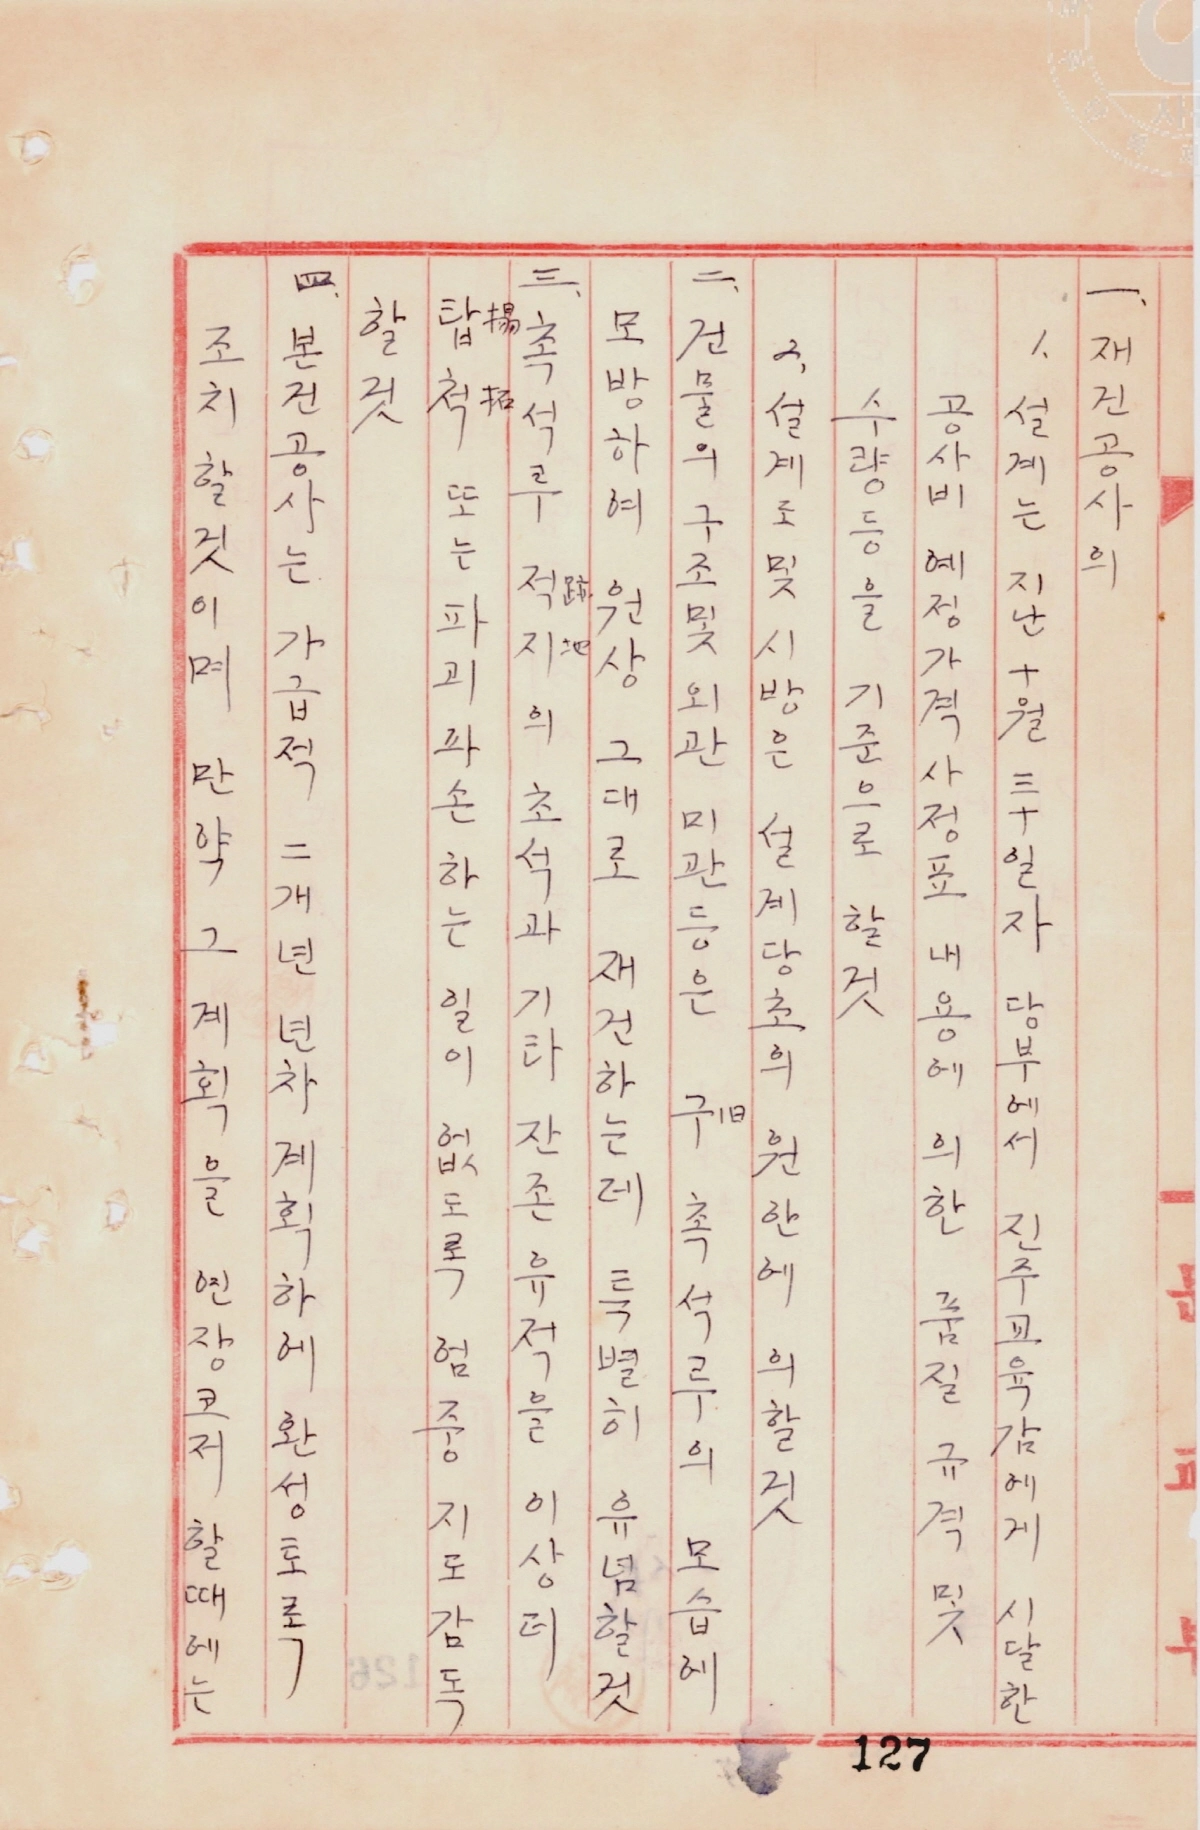 一. 재건공사의
1. 설계는 지난 十월 三十일자 당부에서 진주교육감에게 시달한
공사비 예정가격 사정표 내용에 의한 품질 규격 및
수량등을 기준으로 할것
2. 설계도및 시방은 설계당초의 원안에 의할것
二. 건물의 구조및 외관 미관등은 구旧 촉석루의 모습에
모방하여 원상 그대로 재건하는데 특별히 유념할것
三. 촉석루 적跡지地의 초석과 기타 잔존유적을 이상더
탑搨척拓 또는 파괴 파손하는 일이 없도록 엄중 지도감독
할것
四. 본건공사는 가급적 二개년 년차 계획하에 완성토록
조치할것이며 만약 그 계획을 연장코저 할때에는
127